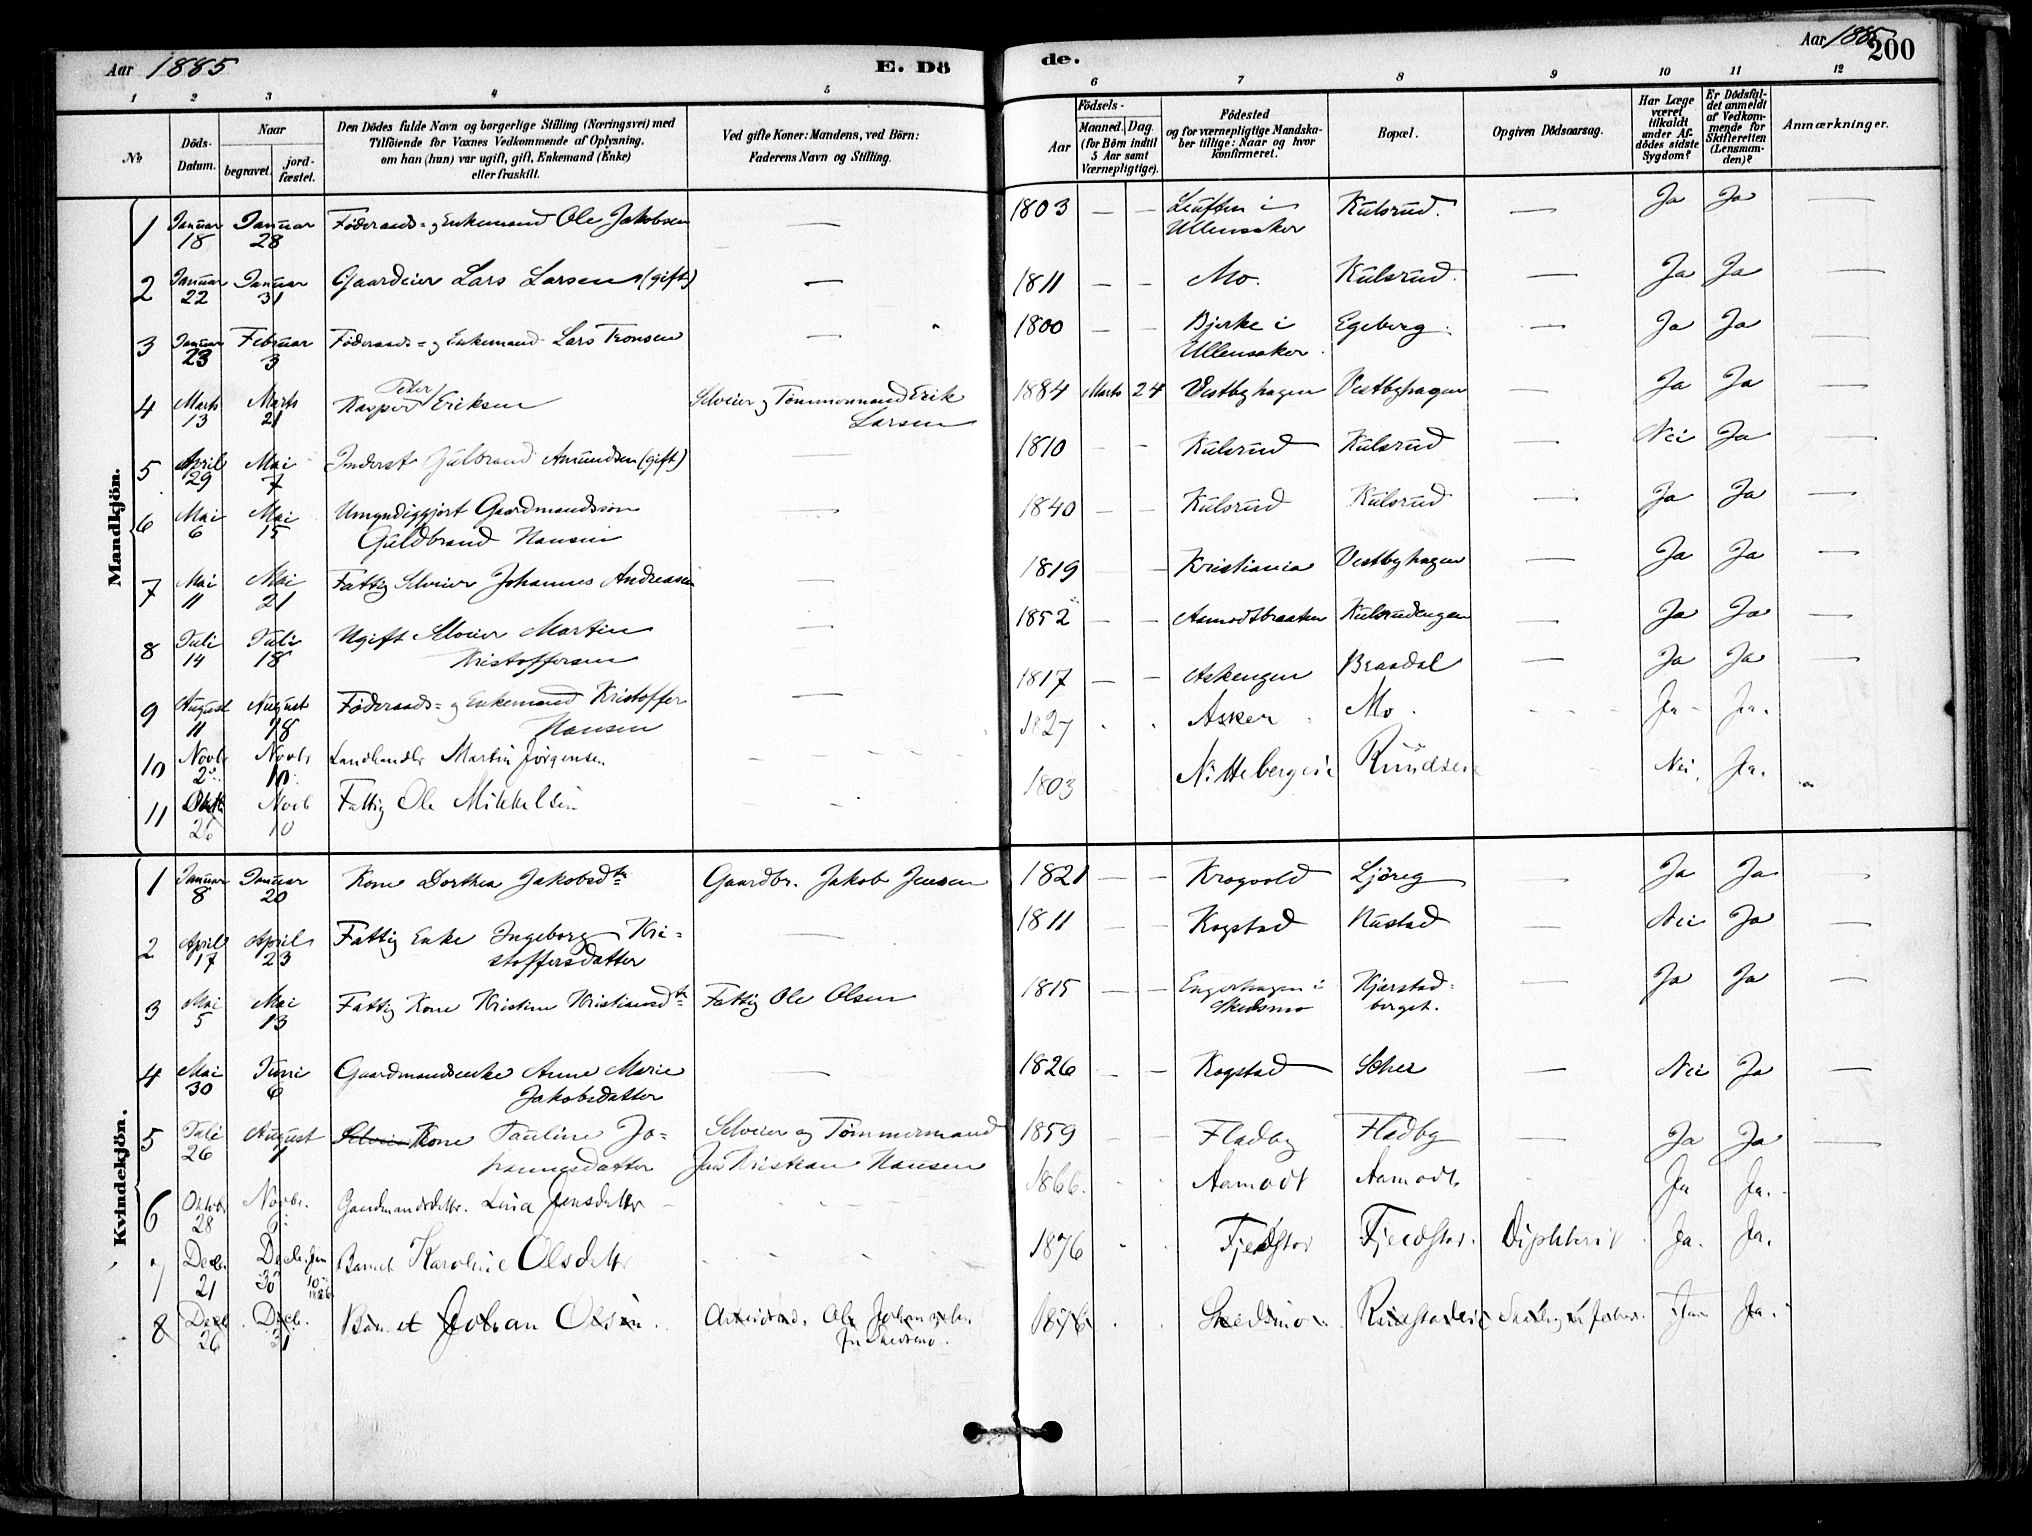 Aar 1885 E. Dö de. Aar 1885 200
1 2 3 4 5 6 7 8 9 10 11 12
No Döds-Datum. Naar begravet. jord-fæstet. Den Dödes fulde Navn og borgerlige Stilling (Næringsvei) med Tilföiende for Voxnes Vedkommende af Oplysning. om han (hun) var ugift, gift, Enkemand (Enke) eller fraskilt. Ved gifte Koner: Mandens, ved Börn: Faderens Navn og Stilling. Födsels- Aar Maaned. Dag. (for Börn indtil 5 Aar samt Værnepligtige). Födested og for værnepligtige Mandska-ber tillige: Naar og hvor konfirmeret. Bopæl. Opgiven Dödsaarsag. Har Læge været tilkaldt under Af-dödes sidste Sygdom? Er Dödsfal-det anmeldt af Vedkom-mende for Skifteretten (Lensman-den)? Anmærkninger.
Mandkjön.
1 Januar 18 Januar 28 Föderaads- og Enkemand Ole Jakobsen — 1803 — — i Ullensaker Kulsrud. — Ja Ja —
2 Januar 22 Januar 31 Gaardeier Lars Larsen (gift) — 1811 — — Mo. Kulsrud. — Ja Ja —
3 Januar 23 Februar 3 Föderaads- og Enkemand Lars Tronsen — 1800 — — Bjerke i Ullensaker. Egeberg. — Ja Ja
4 Marts 13 Marts 21 Kasper Peter Eriksen Selveier og Tømmermand Erik Larsen 1884 Marts 24 Vestbyhagen Vestbyhagen — Ja Ja —
5 April 29 Mai 7 Inderst Gulbrand Amundsen (gift) — 1810 — — Kulsrud Kulsrud — Nei Ja —
6 Mai 6 Mai 15 Umyndiggjort Gaardmandssøn Guldbrand Hansen — 1840 — — Kulsrud Kulsrud — Ja Ja —
7 Mai 11 Mai 21 Fattig Selveier Johannes Andreasen — 1819 — — Kristiania Vestbyhagen — Ja Ja —
8 Juli 14 Juli 18 Ugift Selveier Martin Kristoffersen — 1852 — — Aamodtbraaten Kulsrudengen — Ja Ja —
9 August 11 August 18 Föderaads- og Enkemand Kristoffer Hansen — 1817 — — Askengen Braadal — Ja Ja —
10 Novb. 2 Novbr 10 Landhandler Martin Jørgensen 1827 Asker Mo. Ja Ja.
11 Oktb 26 Novb 10 Fattig Ole Mikkelsen 1803 Nittebergeie Nei. Ja.
Kvindekjön.
1 Januar 8 Januar 20 Kone Dorthea Jakobsdtr Gaardbr. Jakob Jensen 1821 — — Krogvold Ljøreg — Ja Ja —
2 April 17 April 23 Fattig Enke Ingeborg Kri-stoffersdatter — 1811 — — Kogstad Nustad — Nei Ja —
3 Mai 5 Mai 13 Fattig Kone Kristine Kristiansdtr Fattig Ole Olsen 1815 — — Engerhagen i Skedsmo Kjærstad-berget. — Ja Ja —
4 Mai 30 Juni 6 Gaardmandsenke Anne Marie Jakobsdatter — 1826 — — Kogstad — Nei Ja —
5 Juli 26 August 1 Selveier Kone Pauline Jo-hannesdatter Selveier og Tømmermand Jens Kristian Hansen 1859 — — Fladby Fladby — Ja Ja —
6 Oktobr 28 Novbr. Gaardmandsdattr. Lina Jensdattr 1866. Aamodt Aamodt. Ja Ja.
7 Decb. 21 Decb. 30 Jan 10 1886 Barnet Karoline Olsdattr 1876 Fjeldstad Fjeldstad. Diphterit Ja. Ja.
8 Decb 26 Decb. 31 Barnet Johan Olsen. Arbeidsmd. Ole i Skedsmo. 1876 Skedsmo Ja.